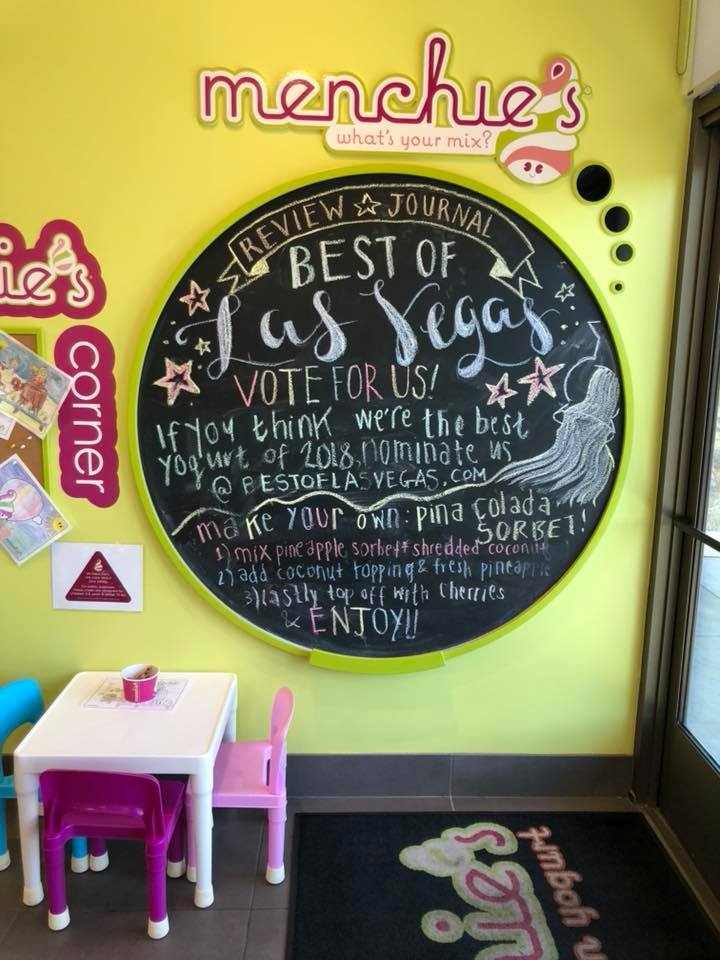 menchie's
what's your mix?
REVIEW JOURNAL
BEST OF
Las Vegas
VOTE FOR US!
If you think we're the best
yogurt of 2018, nominate us
@ BESTOFLASVEGAS.COM
make your own: pina colada
SORBET!
1) mix pineapple sorbet + shredded coconut
2) add coconut topping & fresh pineapple
3) lastly top off with cherries
& ENJOY!!
ie's
corner
ie's
n yogurt